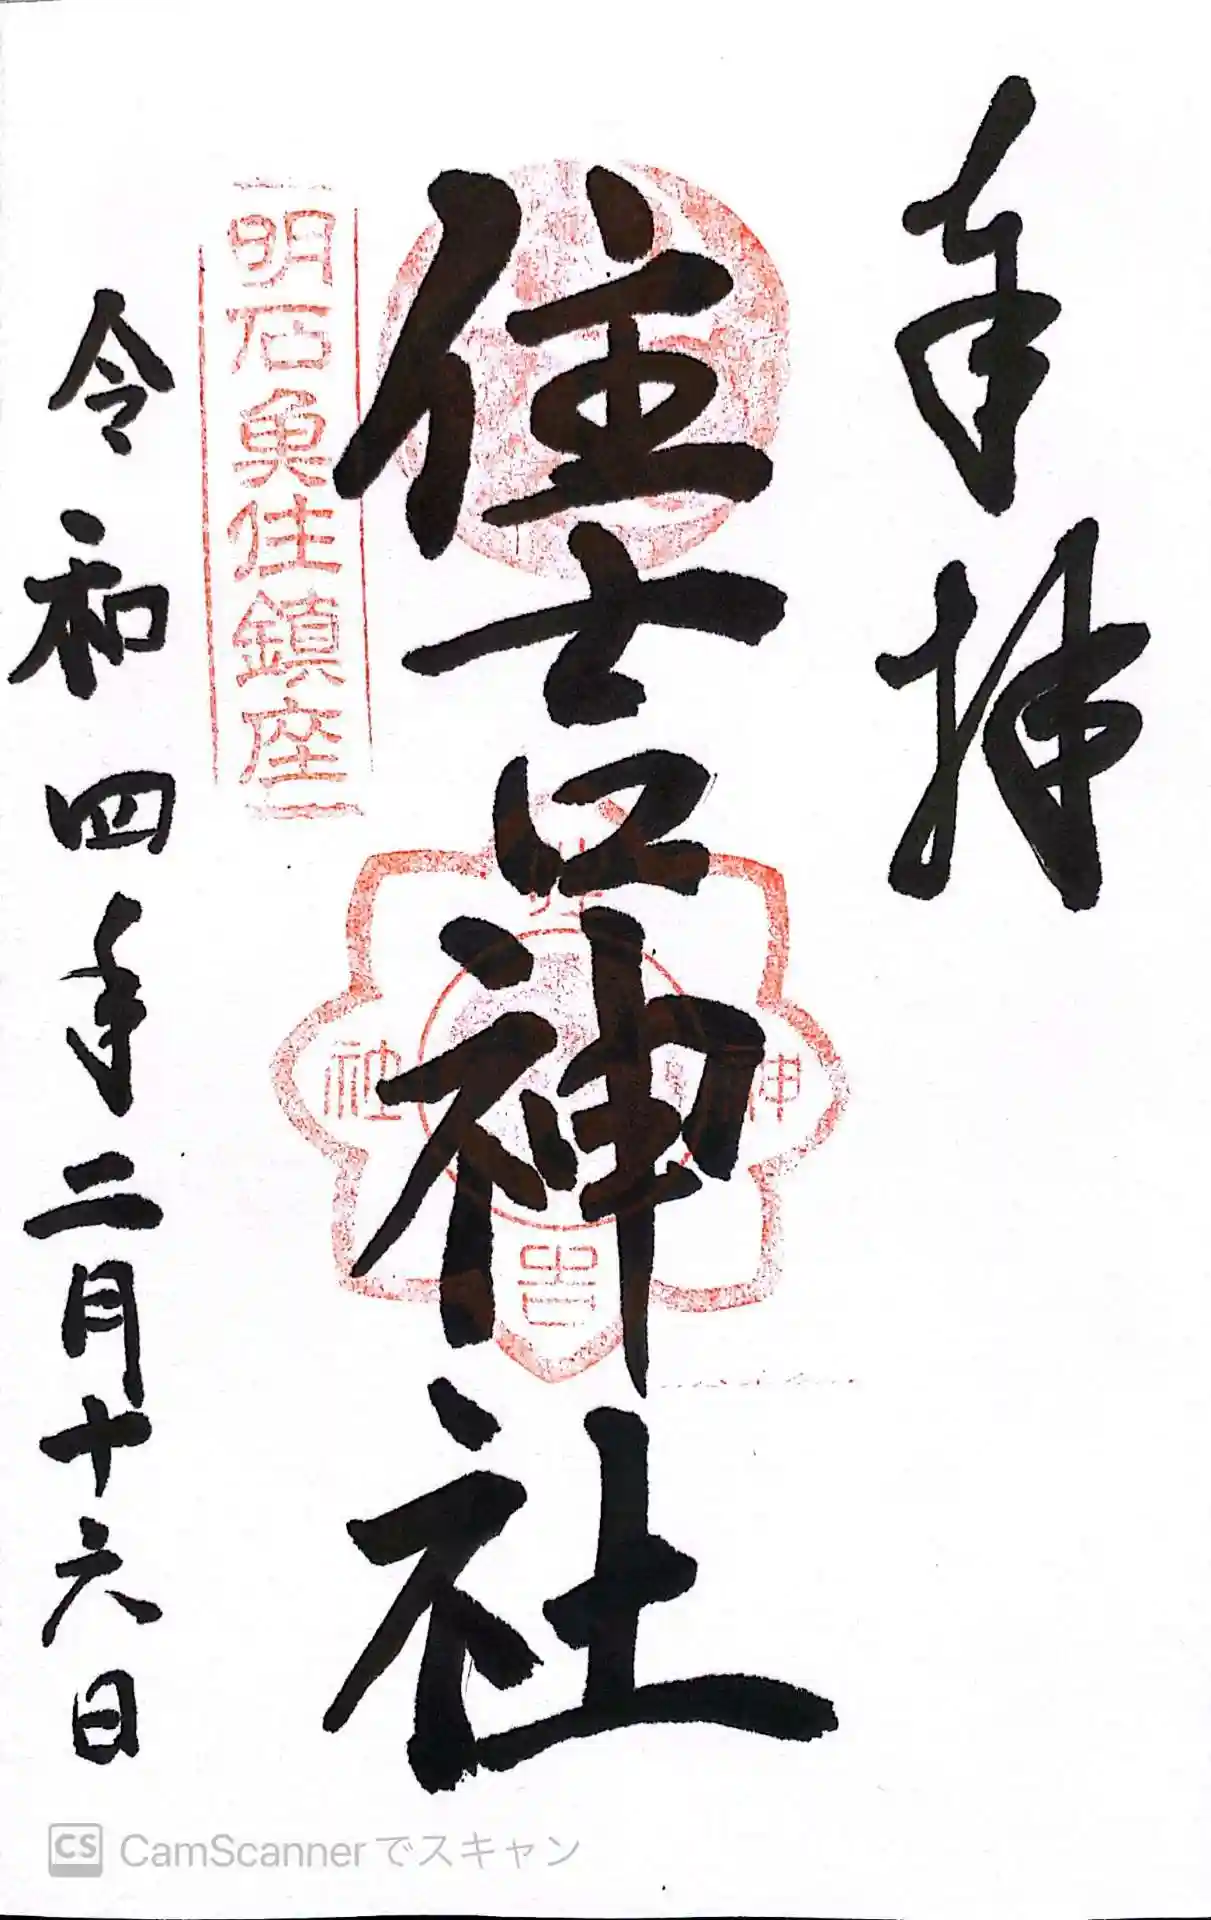 奉拝
住吉神社
明石魚住鎮座
神
社
吉
令和四年二月十六日
CS CamScannerでスキャン